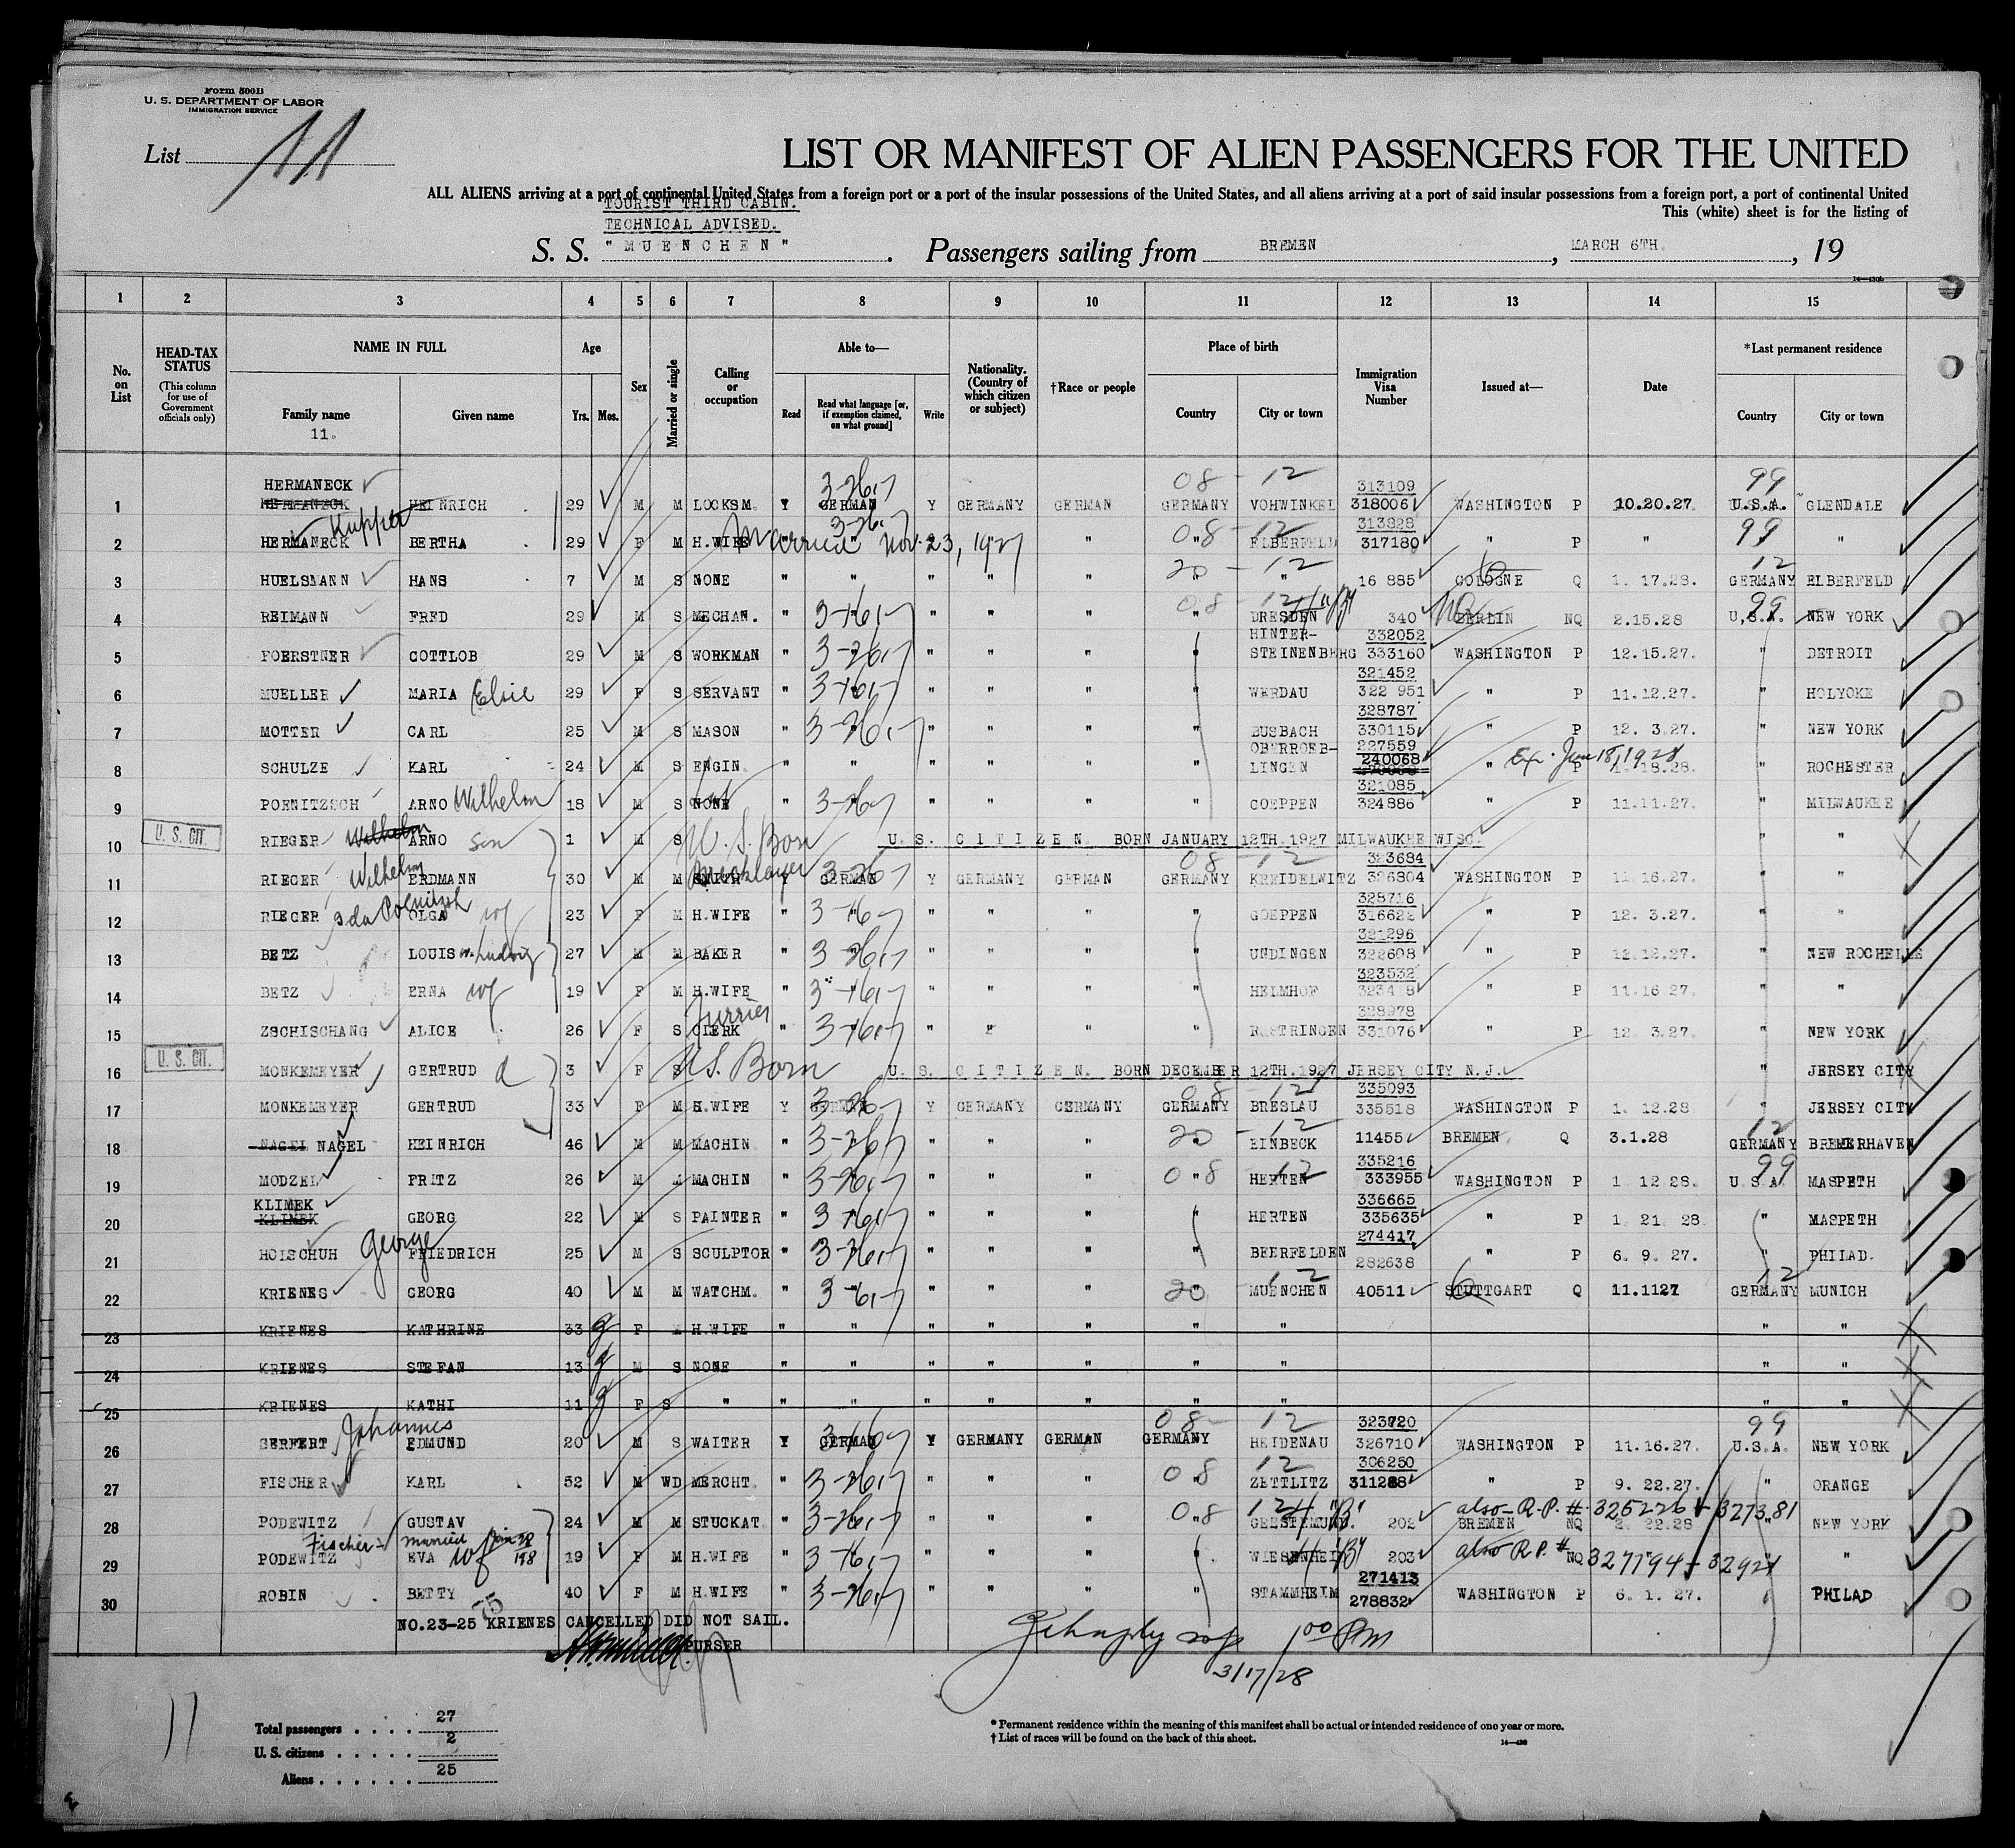 Form 500B
U. S. DEPARTMENT OF LABOR
IMMIGRATION SERVICE
List 11
LIST OR MANIFEST OF ALIEN PASSENGERS FOR THE UNITED
ALL ALIENS arriving at a port of continental United States from a foreign port or a port of the insular possessions of the United States, and all aliens arriving at a port of said insular possessions from a foreign port, a port of continental United
This (white) sheet is for the listing of
TOURIST THIRD CABIN.
TECHNICAL ADVISED.
S. S. "MUENCHEN". Passengers sailing from BREMEN, MARCH 6TH., 19
1 2 3 4 5 6 7 8 9 10 11 12 13 14 15
No. on List
HEAD-TAX STATUS (This column for use of Government officials only)
NAME IN FULL Family name Given name
11.
Age Yrs. Mos.
Sex
Married or single
Calling or occupation
Able to— Read Read what language [or, if exemption claimed, on what ground] Write
Nationality. (Country of which citizen or subject)
†Race or people
Place of birth Country City or town
Immigration Visa Number
Issued at—
Date
*Last permanent residence Country City or town
HERMANECK 313109
1 HERMANECK HEINRICH 29 M M LOCKSM. Y GERMAN Y GERMANY GERMAN GERMANY VOHWINKEL 318006 WASHINGTON P 10.20.27. U.S.A. GLENDALE
Kupper Married Nov. 23, 1927 313828
2 HERMANECK BERTHA 29 F M H.WIFE " " " " " " ELBERFELD 317180 " P " " "
3 HUELSMANN HANS 7 M S NONE " " " " " " " 16 885 COLOGNE Q 1. 17.28. GERMANY ELBERFELD
4 REIMANN FRED 29 M S MECHAN. " " " " " " DRESDEN 340 BERLIN NQ 2.15.28 U.S.A. NEW YORK
HINTER- 332052
5 FOERSTNER GOTTLOB 29 M S WORKMAN " " " " " " STEINENBERG 333160 WASHINGTON P 12.15.27. " DETROIT
321452
6 MUELLER MARIA Elsie 29 F S SERVANT " " " " " " WERDAU 322 951 " P 11.12.27. " HOLYOKE
328787
7 MOTTER CARL 25 M S MASON " " " " " " BUSBACH 330115 " P 12. 3.27. " NEW YORK
OBERROEB- 227559
240068 Exp. Jun 18, 1928
8 SCHULZE KARL 24 M S ENGIN. " " " " " " LINGEN " P 1.18.28. " ROCHESTER
321085
9 PORNITZSCH ARNO Wilhelm 18 M S NONE " " " " " " GOEPPEN 324886 " P 11.11.27. " MILWAUKEE
U. S. CIT.
10 RIEGER Wilhelm ARNO son 1 M S U.S. Born U. S. CITIZEN. BORN JANUARY 12TH.1927 MILWAUKEE WISC. " "
Wilhelm Bricklayer 323684
11 RIEGER ERDMANN 30 M M Y GERMAN Y GERMANY GERMAN GERMANY KREIDELWITZ 326804 WASHINGTON P 11.16.27. " "
328716
12 RIEGER OLGA wf 23 F M H.WIFE " " " " " " GOEPPEN 316622 " P 12. 3.27. " "
321296
13 BETZ LOUIS Ludwig 27 M M BAKER " " " " " " UNDINGEN 322608 " P 12.12.27. " NEW ROCHELLE
323532
14 BETZ ERNA wf 19 F M H.WIFE " " " " " " HELMHOF " P 11.16 27. " "
Furrier 328978
15 ZSCHISCHANG ALICE 26 F S CLERK " " " " " " RUSTRINGEN 331076 " P 12. 3.27. " NEW YORK
U. S. CIT.
16 MONKEMEYER GERTRUD 3 F S U.S. Born U. S. CITIZEN. BORN DECEMBER 12TH.1927 JERSEY CITY N.J. " JERSEY CITY
335093
17 MONKEMEYER GERTRUD 33 F M H.WIFE Y GERMAN Y GERMANY GERMANY GERMANY BRESLAU 335518 WASHINGTON P 1. 12.28 " JERSEY CITY
18 NAGEL NAGEL HEINRICH 46 M M MACHIN " " " " " " EINBECK 11455 BREMEN Q 3.1.28 GERMANY BREMERHAVEN
335216
19 MODZEL FRITZ 26 M M MACHIN " " " " " " HERTEN 333955 WASHINGTON P 1 12 28. U.S.A. MASPETH
KLIMEK 336665
20 KLIMEK GEORG 22 M S PAINTER " " " " " " HERTEN 335635 " P 1. 21. 28. " MASPETH
George 274417
21 HOISCHUH FRIEDRICH 25 M S SCULPTOR " " " " " " BEERFELDEN 282638 " P 6. 9. 27. " PHILAD.
22 KRIENES GEORG 40 M M WATCHM. " " " " " " MUENCHEN 40511 STUTTGART Q 11.1127 GERMANY MUNICH
23 KRIENES KATHRINE 33 F M H.WIFE " " " " " " " " "
24 KRIENES STEFAN 13 M S NONE " " " " " " " " "
25 KRIENES KATHI 11 F S " " " " " " " " " "
Johannes 323720
26 SERFERT EDMUND 20 M S WAITER Y GERMAN Y GERMANY GERMAN GERMANY HEIDENAU 326710 WASHINGTON P 11.16.27. U.S.A. NEW YORK
306250
27 FISCHER KARL 52 M WD MERCHT. " " " " " " ZETTLITZ 311288 " P 9. 22.27. " ORANGE
also R.P. # 325226 + 327381
28 PODEWITZ GUSTAV 24 M M STUCKAT. " " " " " " GEESTEMUND. 202 BREMEN NQ 2. 22.28 NEW YORK
Fischer married also R.P. # 327194
29 PODEWITZ EVA wf 19 F M H.WIFE " " " " " " WIESENHEID 203 NQ "
271413
30 ROBIN BETTY 40 F M H.WIFE " " " " " " STAMMHEIM 278832 WASHINGTON P 6. 1. 27. " PHILAD
NO.23-25 KRIENES CANCELLED DID NOT SAIL.
PURSER
1 00 PM
3/17/28
11
Total passengers . . . . 27
U. S. citizens . . . . . 2
Aliens . . . . . . 25
* Permanent residence within the meaning of this manifest shall be actual or intended residence of one year or more.
† List of races will be found on the back of this sheet.